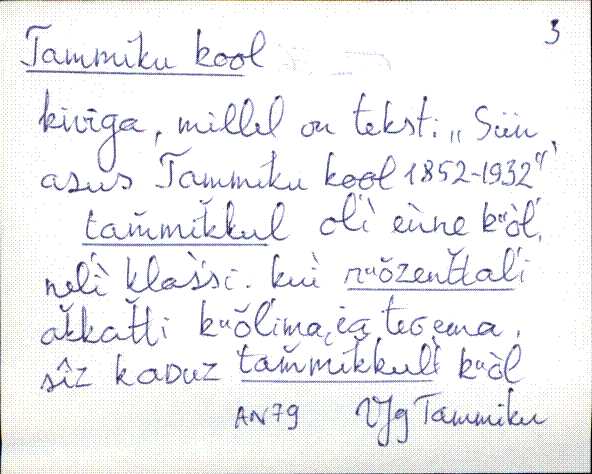 3
Tammiku kool
kiviga, millel on tekst: „Siin
asus Tammiku kool 1852-1932“,
tam̆mik̆kul oĺì eùne kᵘòl̀,
nelì klaśsi. kuì rᵘõzent̆tali
ak̆kat̆ti kᵘõlima,
sîz kaDuz tam̆mik̆kulì kᵘòl
AN79 VJg Tammiku